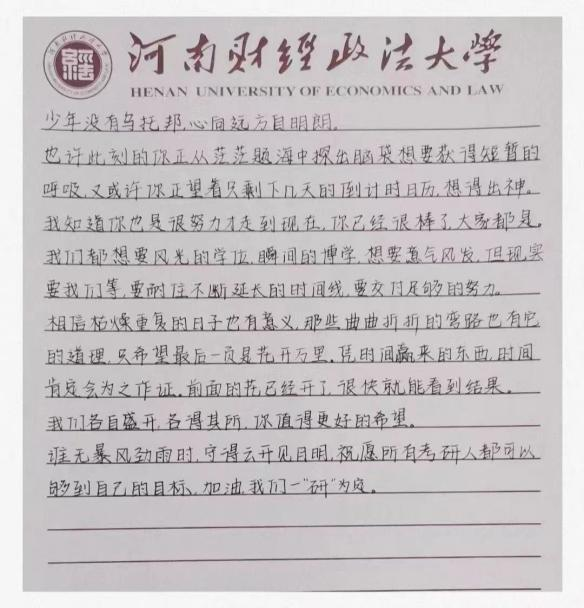 河南财经政法大學
HENAN UNIVERSITY OF ECONOMICS AND LAW
少年没有乌托邦,心向远方自明朗。
也许此刻的你正从茫茫题海中探出脑袋想要获得短暂的
呼吸,又或许你正望着只剩下几天的倒计时日历,想得出神。
我知道你也是很努力才走到现在,你已经很棒了,大家都是。
我们都想要风光的学位,瞬间的博学,想要意气风发,但现实
要我们等,要耐住不断延长的时间线,要交付足够的努力。
相信枯燥重复的日子也有意义,那些曲曲折折的弯路也有它
的道理,只希望最后一页是花开万里。凭时间赢来的东西,时间
肯定会为之作证。前面的花已经开了,很快就能看到结果。
我们各自盛开,各得其所,你值得更好的希望。
谁无暴风劲雨时,守得云开见月明,祝愿所有考研人都可以
够到自己的目标、加油,我们一“研”为定。